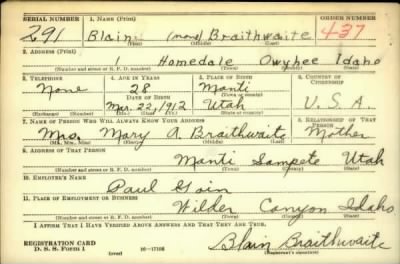 SERIAL NUMBER 1. NAME (Print) ORDER NUMBER
291 Blain (none) Braithwaite 437
(First) (Middle) (Last)
2. ADDRESS (Print)
1 Homedale Owyhee Idaho
(Number and street or R. F. D. number) (Town) (County) (State)
3. TELEPHONE 4. AGE IN YEARS 5. PLACE OF BIRTH 6. COUNTRY OF CITIZENSHIP
None 28 Manti
DATE OF BIRTH (Town or county)
Mar. 22, 1912 Utah U. S. A.
(Exchange) (Number) (Mo.) (Day) (Yr.) (State or country)
7. NAME OF PERSON WHO WILL ALWAYS KNOW YOUR ADDRESS 8. RELATIONSHIP OF THAT PERSON
Mrs. Mary A Braithwaite Mother
(Mr., Mrs., Miss) (First) (Middle) (Last)
9. ADDRESS OF THAT PERSON
Manti Sanpete Utah
(Number and street or R. F. D. number) (Town) (County) (State)
10. EMPLOYER'S NAME
Paul
11. PLACE OF EMPLOYMENT OR BUSINESS
Wilder Canyon Idaho
(Number and street or R. F. D. number) (Town) (County) (State)
I AFFIRM THAT I HAVE VERIFIED ABOVE ANSWERS AND THAT THEY ARE TRUE.
REGISTRATION CARD
D. S. S. Form 1 (over) 16-17105 Blain Braithwaite